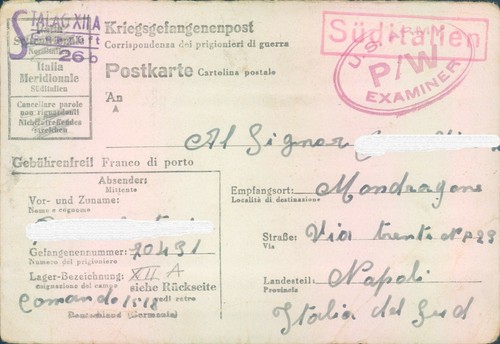 STALAG XII A
Süditalien
Kriegsgefangenenpost
Corrispondenza dei prigionieri di guerra
U.S. ARMY
P/W
EXAMINER
26b
Italia
Meridionale
Süditalien
Postkarte Cartolina postale
Cancellare parole
non riguardanti
Nichtzutreffendes
streichen
An
A
Al Signor
Gebührenfrei! Franco di porto
Absender:
Mittente
Vor- und Zuname:
Nome e cognome
Empfangsort: Mondragone
Località di destinazione
Gefangenennummer: 70491
Numero del prigioniero
Straße: Via trento N° 29
Via
Lager-Bezeichnung: XII A
siehe Rückseite
vedi retro
Comando 1518
Deutschland (Germania)
Landesteil: Napoli
Provincia
Italia del Sud